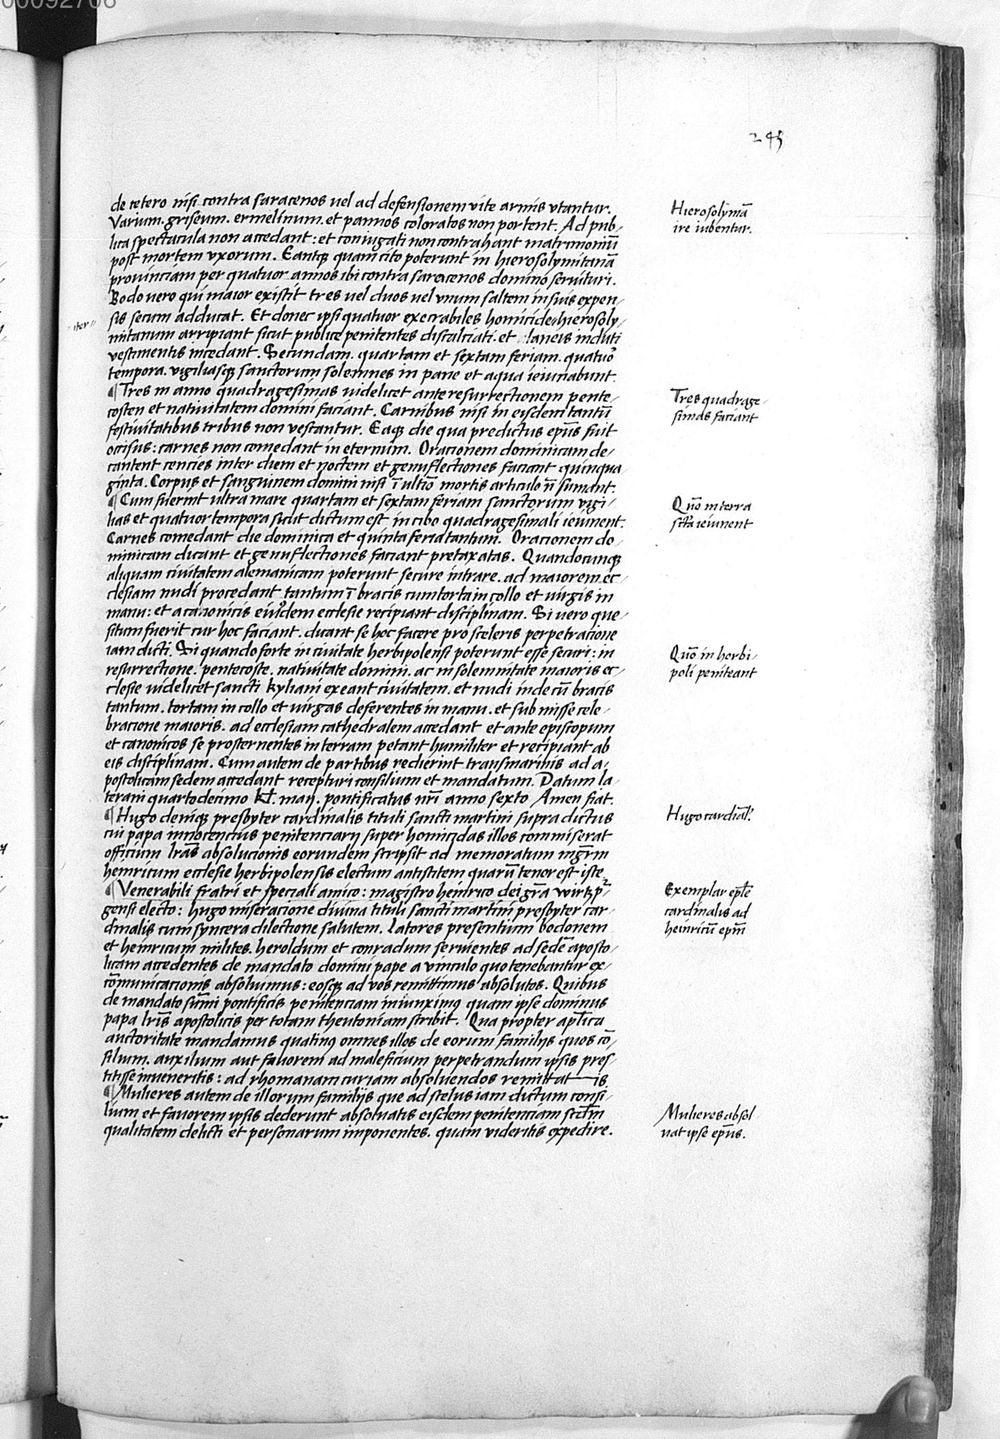 00092706
245
de cetero nisi contra saracenos uel ad defensionem vite armis vtantur.
Varium. griseum. ermelinum. et pannos coloratos non portent. Ad pub-
lica spectacula non accedant: et coniugati non contrahant matrimoniū
post mortem vxorum. Eantqꝫ quam cito poterunt in hierosolymitanā
prouinciam per quatuor annos ibi contra saracenos domino seruituri.
Bodo uero qui maior existit tres uel duos uel vnum saltem in suis expen-
sis secum adducat. Et donec ipsi quatuor execrabiles homicide hierosoly-
mitanum arripiant sicut publice penitentes discalciati et laneis induti
vestimentis incedant. Secundam. quartam et sextam feriam. quatuor
tempora. vigiliasqꝫ sanctorum solemnes in pane et aqua ieiunabunt.
¶ Tres in anno quadragesimas uidelicet ante resurrectionem pente-
costen et natiuitatem domini faciant. Carnibus nisi in eisdem tantū
festiuitatibus tribus non vescantur. Eaqꝫ die qua predictus ep̄us fuit
occisus: carnes non comedant in eternum. Orationem dominicam de-
cantent centies inter diem et noctem et genuflectiones faciant quinqua-
ginta. Corpus et sanguinem domini nisi ī ultīo mortis articulo n̄ sumant.
¶ Cum fuerint ultra mare quartam et sextam feriam sanctorum vigi-
lias et quatuor tempora sicut dictum est in cibo quadragesimali ieiunent.
Carnes comedant die dominica et quinta feria tantum. Orationem do-
minicam dicant et genuflectiones faciant pretaxatas. Quandocunqꝫ
aliquam ciuitatem alemanicam poterunt secure intrare. ad maiorem ec-
clesiam nudi procedant tantum ī bracis cum torta in collo et uirgis in
manu: et a canonicis eiusdem ecclesie recipiant disciplinam. Si uero que-
situm fuerit cur hoc faciant. dicant se hoc facere pro sceleris perpetratione
iam dicti. Si quando forte in ciuitate herbipolensi poterunt esse securi: in
resurrectione. pentecoste. natiuitate domini. ac in solemnitate maioris ec-
clesie uidelicet sancti kyliani exeant ciuitatem. et nudi inde cū bracis
tantum. tortam in collo et uirgas deferentes in manu. et sub misse cele-
bracione maioris. ad ecclesiam cathedralem accedant et ante episcopum
et canonicos se prosternentes in terram petant humiliter et recipiant ab
eis disciplinam. Cum autem de partibus redierint transmarinis ad a-
postolicam sedem accedant recepturi consilium et mandatum. Datum la-
terani quartodecimo kl̄. maij. pontificatus nr̄i anno sexto Amen fiat.
¶ Hugo deniqꝫ presbyter cardinalis tituli sancti martini supra dictus
cui papa innocencius penitenciarij super homicidas illos commiserat
officium lr̄as absolucionis eorundem scripsit ad memoratum mgr̄m
heinricum ecclesie herbipolensis electum antistitem quarū tenor est iste.
¶ Venerabili fratri et speciali amico: magistro heinrico dei gr̄a wirtzp-
gensi electo: hugo miseracione diuina tituli sancti martini presbyter car-
dinalis cum syncera dilectione salutem. Latores presentium bodonem
et heinricum milites. heroldum et conradum seruientes ad sedē aposto-
licam accedentes de mandato domini pape a vinculo quo tenebantur ex-
cōmunicacionis absoluimus: eosqꝫ ad vos remittimus absolutos. Quibus
de mandato sūmi pontificis penitenciam iniunximus quam ipse dominus
papa lr̄is apostolicis per totam theutoniam scribit. Qua propter apl̄ica
auctoritate mandamus quatinus omnes illos de eorum familijs quos cō-
silium. auxilium aut fauorem ad maleficium perpetrandum ipsis pres-
titisse inueneritis: ad rhomanam curiam absoluendos remittatis.
¶ Mulieres autem de illorum familijs que ad scelus iam dictum consi-
lium et fauorem ipsis dederunt absoluatis eisdem penitenciam scd̄m
qualitatem delicti et personarum imponentes. quam videritis expedire.
Hierosolymā
ire iubentur.
Tres quadrage-
simas faciant
Quō in terra
sctā ieiunent
Quō in herbi-
poli peniteant
Hugo cardinal'
Exemplar epl̄e
cardinalis ad
heinricū ep̄m
Mulieres absol-
uat ipse ep̄us.